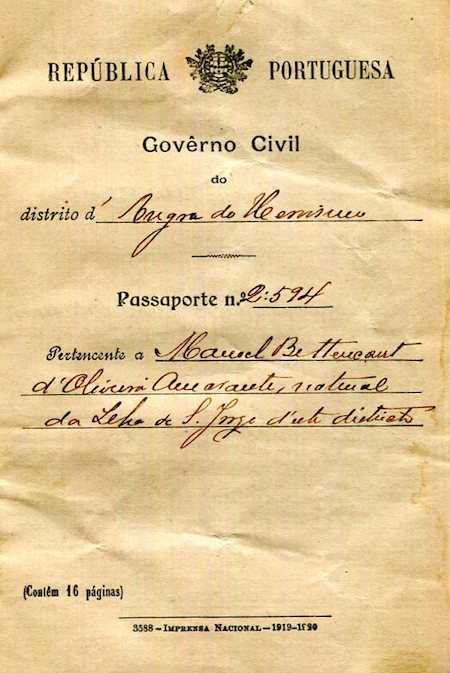 REPÚBLICA PORTUGUESA
Govêrno Civil
do
distrito d' Angra do Heroismo
Passaporte n.º 2:594
Pertencente a Manoel Bettencourt
d'Oliveira Amarante, natural
da Ilha de S. Jorge d'este districto
(Contêm 16 páginas)
3588 — IMPRENSA NACIONAL — 1919-1920